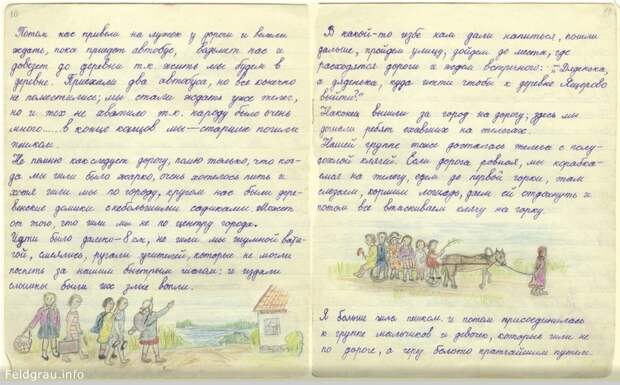 10
Потом нас привели на лужок у дороги и велели
ждать, пока приедет автобус, возьмет нас и
довезет до деревни т.к. жить мы будем в
деревне. Приехали два автобуса, но все конечно
не поместились; мы стали ждать уже позже,
но и тех не хватило т.к. народу было очень
много..... в конце концов мы — старшие пошли
пешком.
Не помню как следует дорогу, помню только, что ког-
да мы шли было жарко, очень хотелось пить и
хотя шли мы по городу, кругом нас были дере-
венские домики с небольшими садиками. Может
от того, что шли мы не по центру города.
Идти было далеко – 8 км, но шли мы шумной вата-
гой, смеялись, ругали учителей, которые не могли
поспеть за нашим быстрым шагом: и издали
слышны были их злые вопли.
11
В какой-то избе нам дали напиться, пошли
дальше, пройдем улицу, дойдем до места, где
расходятся дороги и ждем встречного: – „Дяденька,
а дяденька, куда идти чтобы к деревне Ящерово
выйти?"
Наконец вышли за город на дорогу; здесь мы
догнали ребят ехавших на телегах.
Нашей группе тоже досталась телега с полу-
дохлой клячей. Если дорога ровная, мы карабка-
емся на телегу, едем до первой горки, там
слезаем, кормим лошадь, даем ей отдохнуть и
потом все втаскиваем клячу на горку.
Я больше шла пешком и потом присоединилась
к группе мальчиков и девочек, которые шли не
по дороге, а через болото кратчайшим путем.
Feldgrau.info